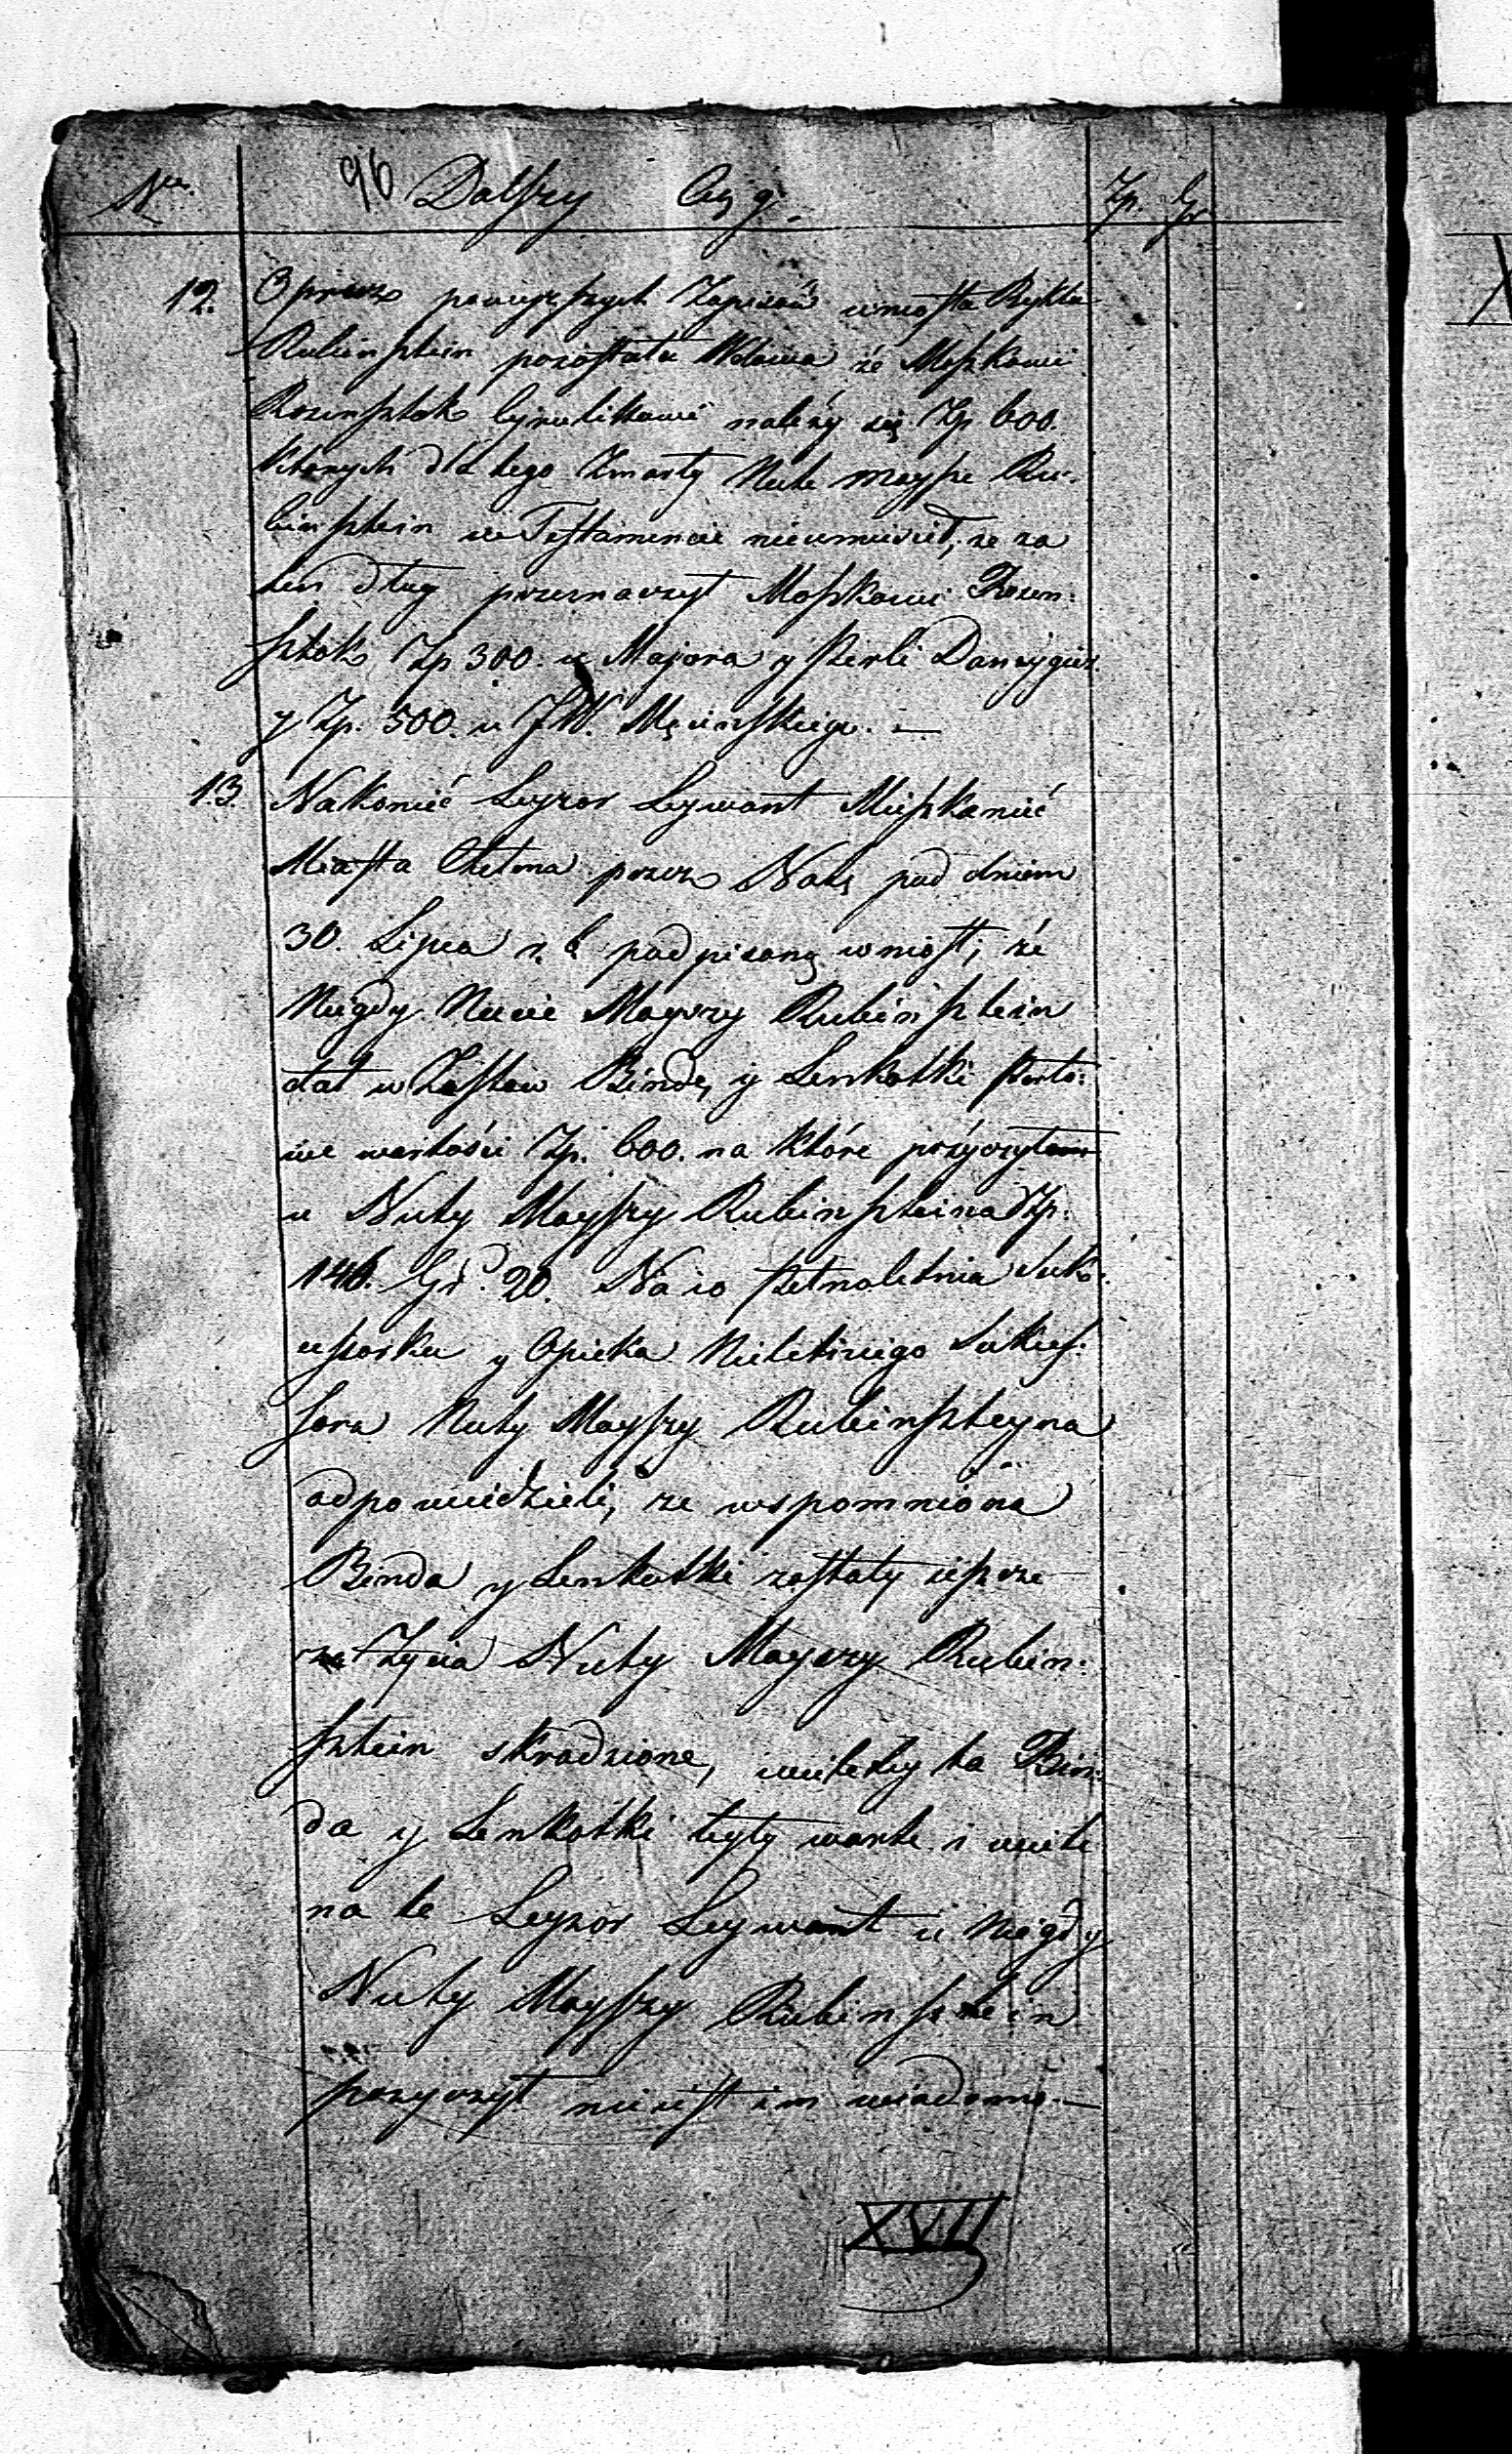 Nro. 96 Dalszy Ciąg. Zp. Gr.
12. Oprócz powyższych Zapisów wniosła Rykla
Rubinsztein pozostała Wdowa że Moszkowi
Rozensztok Cyrulikowi należy się Zp 600.
których dla tego Zmarły Nute Moysze Ru:
binsztein w Testamencie nieumieścił, że za
ten dług przeznaczył Moszkowi Rozen:
sztok Zp 300. u Majora y Perli Danzygier
y Zp. 300. u JW. Męcinskiego. —
13. Nakonieć Leyzor Leywant Mieszkanieć
Miasta Chełma przez Notę pod dniem
30. Lipca r. b podpisaną wniosł, że
Niegdy Nucie Moyszy Rubinsztein
dał w Zastaw Bindę y Lenkotki Perło:
we wartości Zp. 600. na które pożyczyłem
u Nuty Moyszy Rubinszteina Zp.
146. Gr. 20. Na co Pełnoletnia Suk:
cessorka y Opieka Nieletniego Sukces:
sora Nuty Moyszy Rubinszteyna
odpowiedzieli, że wspomniona
Binda y Lenkotki zostały ieszcze
za Zycia Nuty Moyszy Rubin:
sztein skradzione, wieleby ta Bin:
da y Lenkotki były warte i wiele
na te Leyzor Leywant u Niegdy
Nuty Moyszy Rubinsztein
pożyczył nieiest im wiadomo. —
XVII